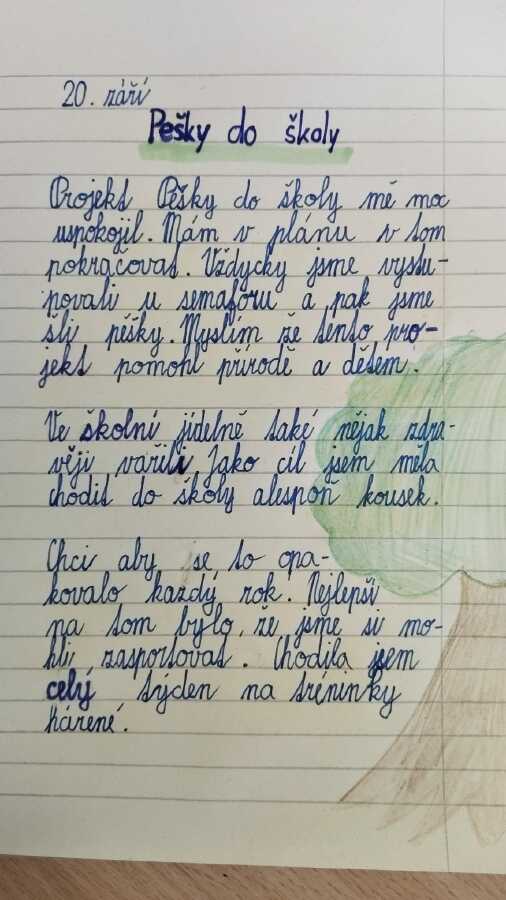 20. září
Pešky do školy
Projekt Pěšky do školy mě moc
uspokojil. Mám v plánu v tom
pokračovat. Vždycky jsme vystu-
povali u semaforu a pak jsme
šli pěšky. Myslím že tento pro-
jekt pomohl přírodě a dětem.
Ve školní jídelně také nějak zdra-
věji vařili Jako cíl jsem měla
chodit do školy alespoň kousek.
Chci aby se to opa-
kovalo každý rok. Nejlepší
na tom bylo, že jsme si mo-
hli zasportovat. Chodila jsem
celý týden na tréninky
házené.